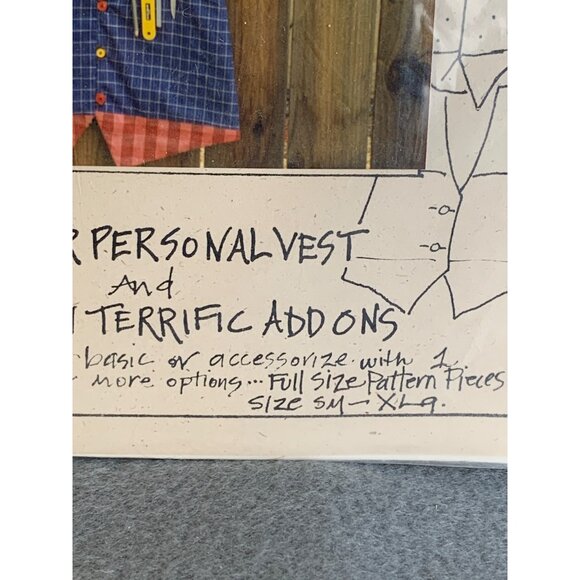 R PERSONAL VEST
And
TERRIFIC ADD ONS
basic or accessorize with 1
more options... Full Size Pattern Pieces
Size SM - XLg.